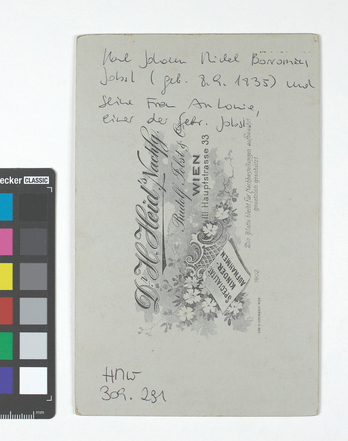 Karl Johann Michel Borromäus
Jobst (geb. 8.9. 1835) und
seine Frau Antonie,
einer der Gebr. Jobst
Dr H. Heid's Nachfg.
Rudolf Jobst & Co
WIEN
III. Hauptstrasse 33
Die Platte bleibt für Nachbestellungen aufbewahrt
SPECIALITÄT:
KINDER-
AUFNAHMEN
1902
HMW
309.291
ecker CLASSIC
mm